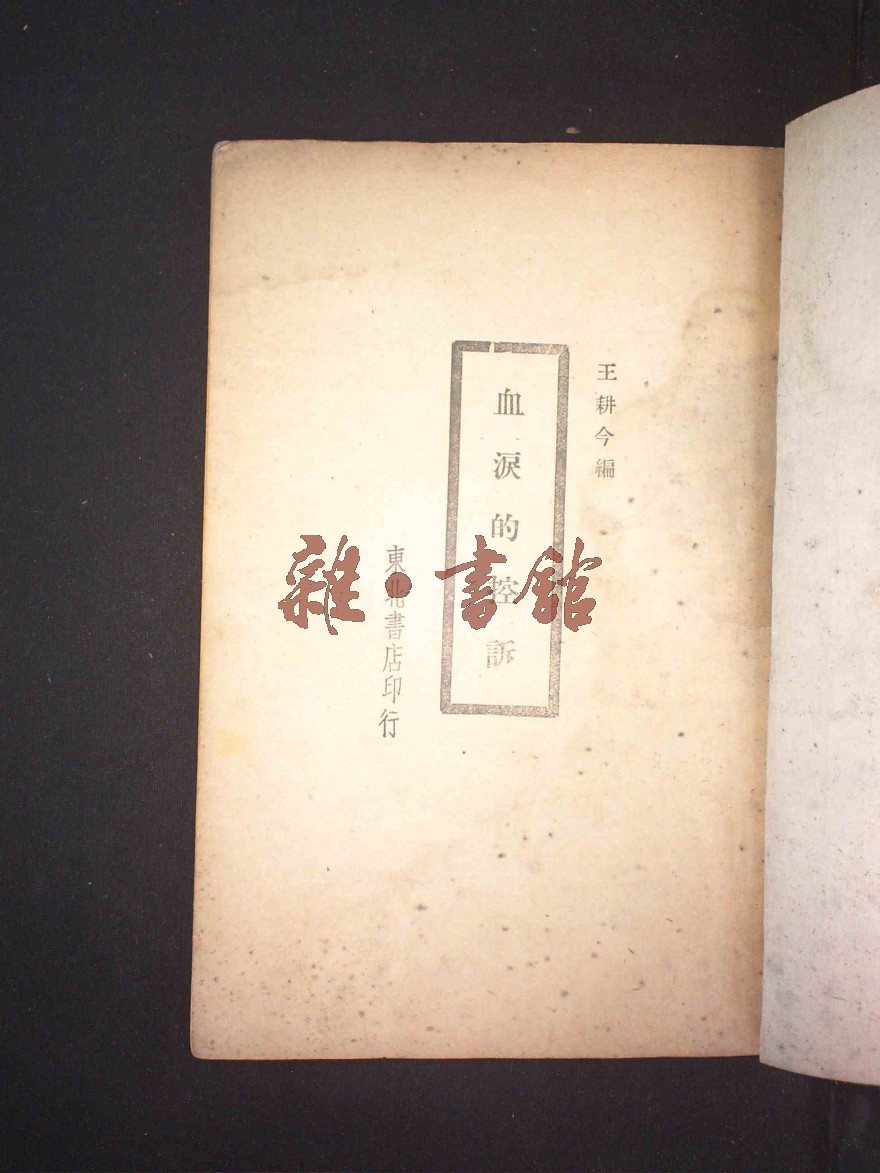 王耕今編
血淚的控訴
東北書店印行
雜·書館